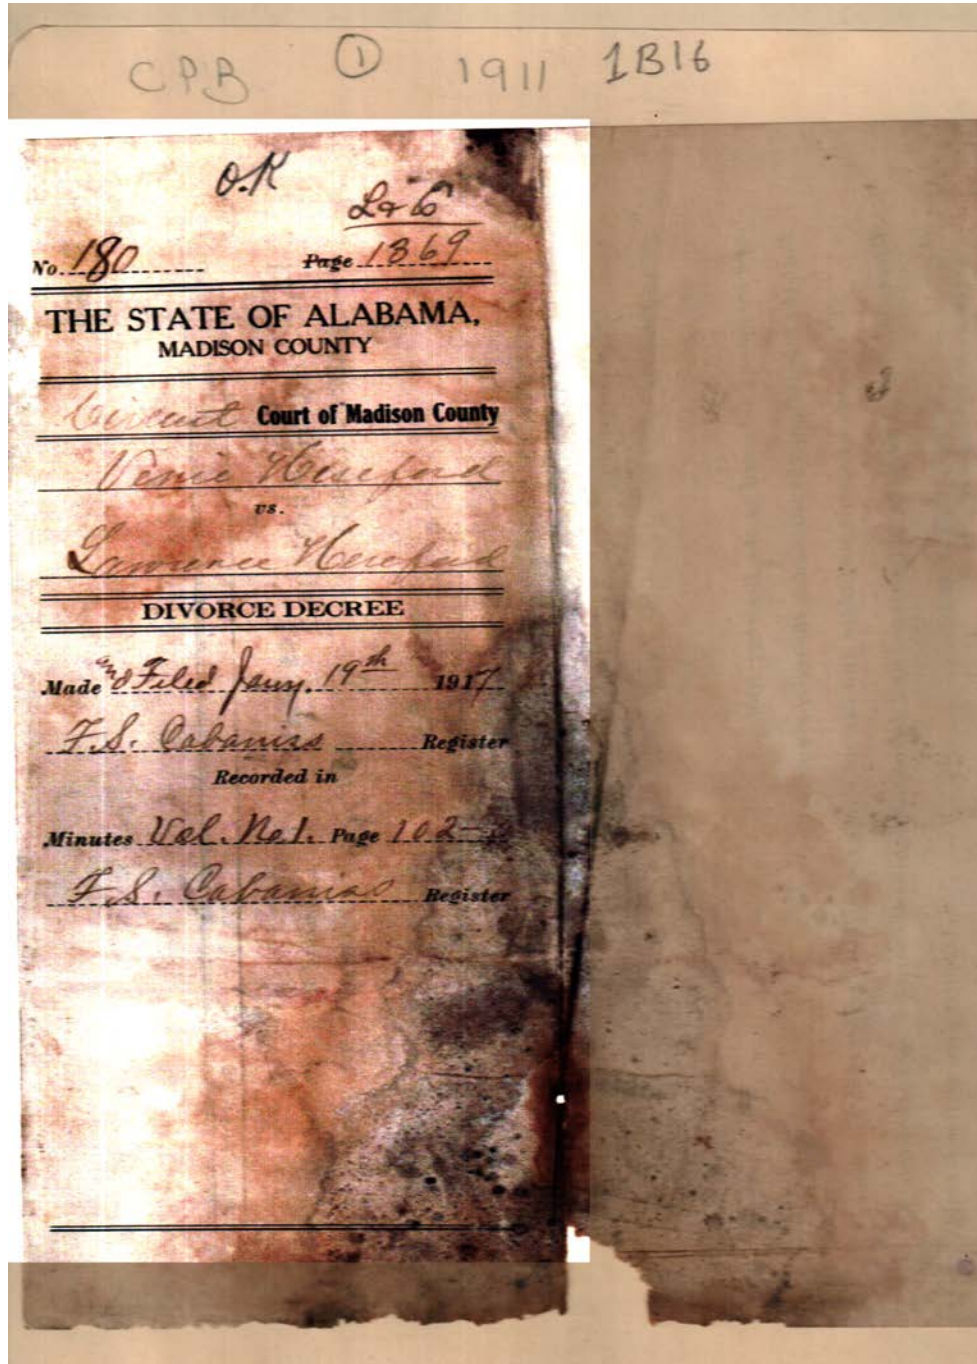 CPB ① 1911 1B16
O.K
L & C
No. 180 Page 1369
THE STATE OF ALABAMA,
MADISON COUNTY
Circuit Court of Madison County
Venie Hereford
vs.
Lawrence Hereford
DIVORCE DECREE
Made and Filed Jany. 19th 1917
F.S. Cabaniss Register
Recorded in
Minutes Vol. No 1. Page 102
F.S. Cabaniss Register